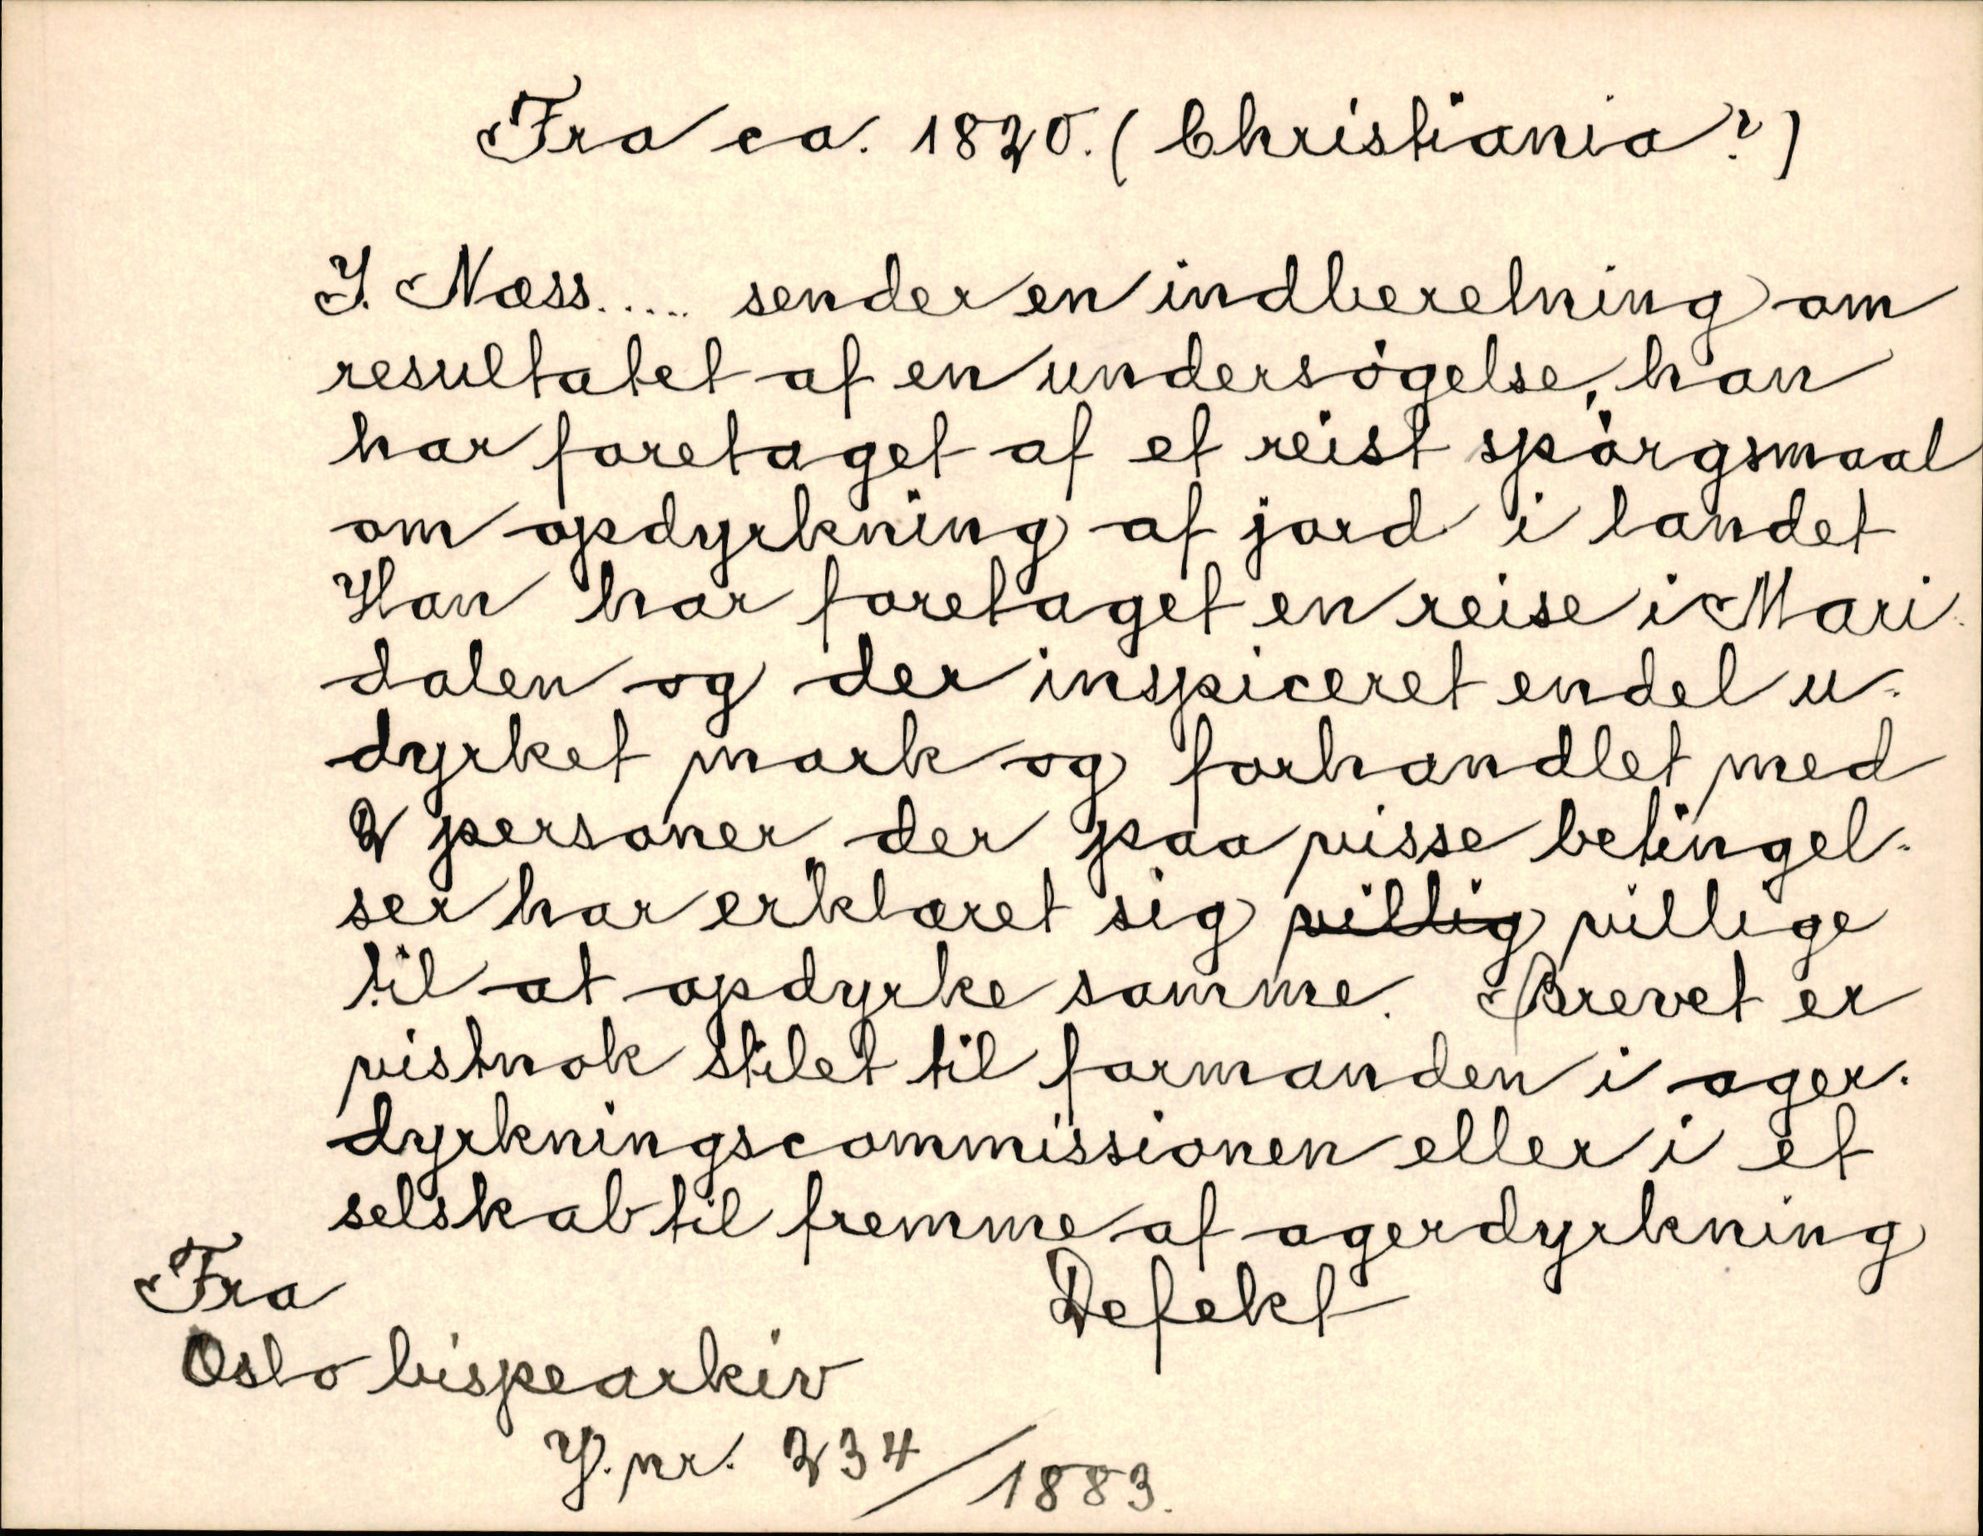 Fra ca. 1820. (Christiania?)
J. Næss..... sender en indberetning om
resultatet af en undersøgelse, han
har foretaget af et reist spørgsmaal
om opdyrkning af jord i landet
Han har foretaget en reise i Mari-
dalen og der inspiceret endel u-
dyrket mark og forhandlet med
2 personer, der paa visse betingel-
ser har erklæret sig villig villige
til at opdyrke samme. Brevet er
vistnok stilet til formanden i ager-
dyrkningscommissionen eller i et
selskab til fremme af agerdyrkning
Defekt
Fra
Oslo bispearkiv
J. nr. 234/1883.